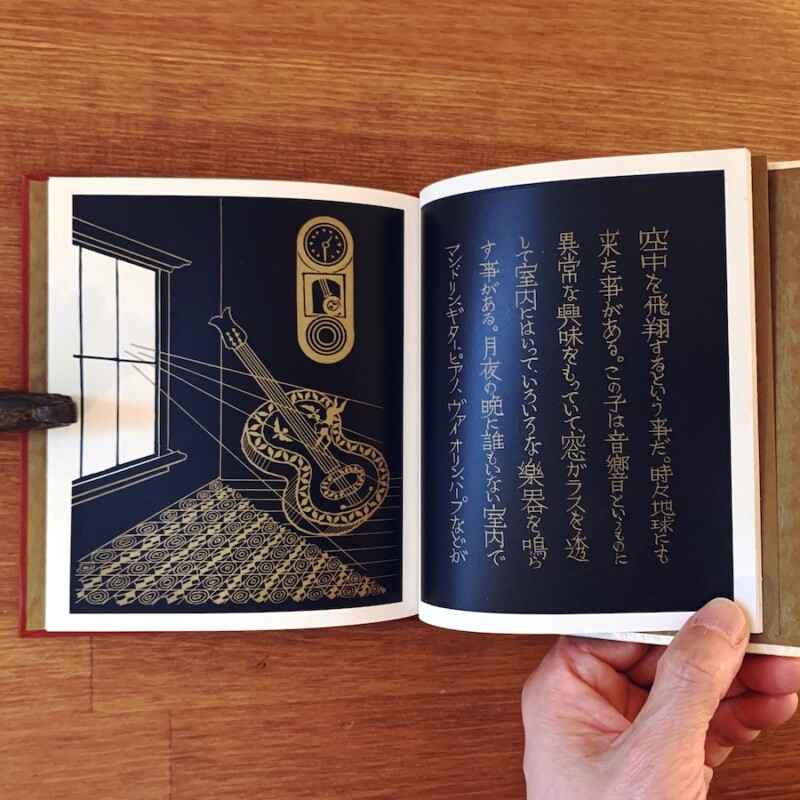 空中を飛翔するという事だ。時々地球にも
来た事がある。この子は音響音というものに
異常な興味をもっていて、窓ガラスを透
して室内にはいって、いろいろな楽器を鳴ら
す事がある。月夜の晩に誰もいない室内で
マンドリン、ギター、ピアノ、ヴァイオリン、ハープなどが